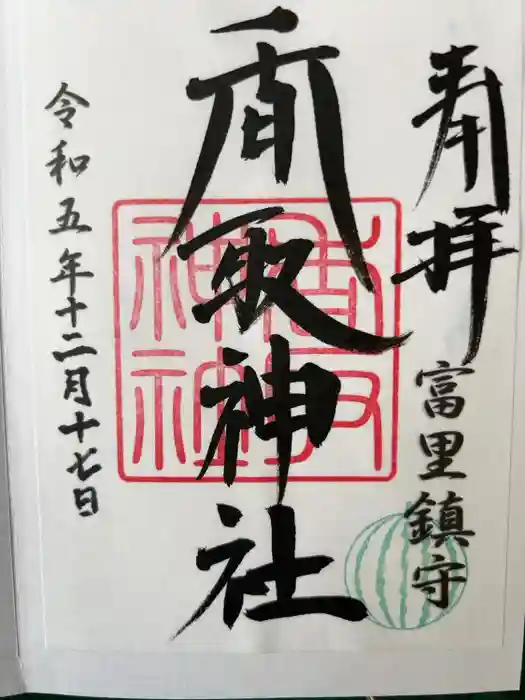 奉拝
富里鎮守
香取神社
香取
神社
令和五年十二月十七日